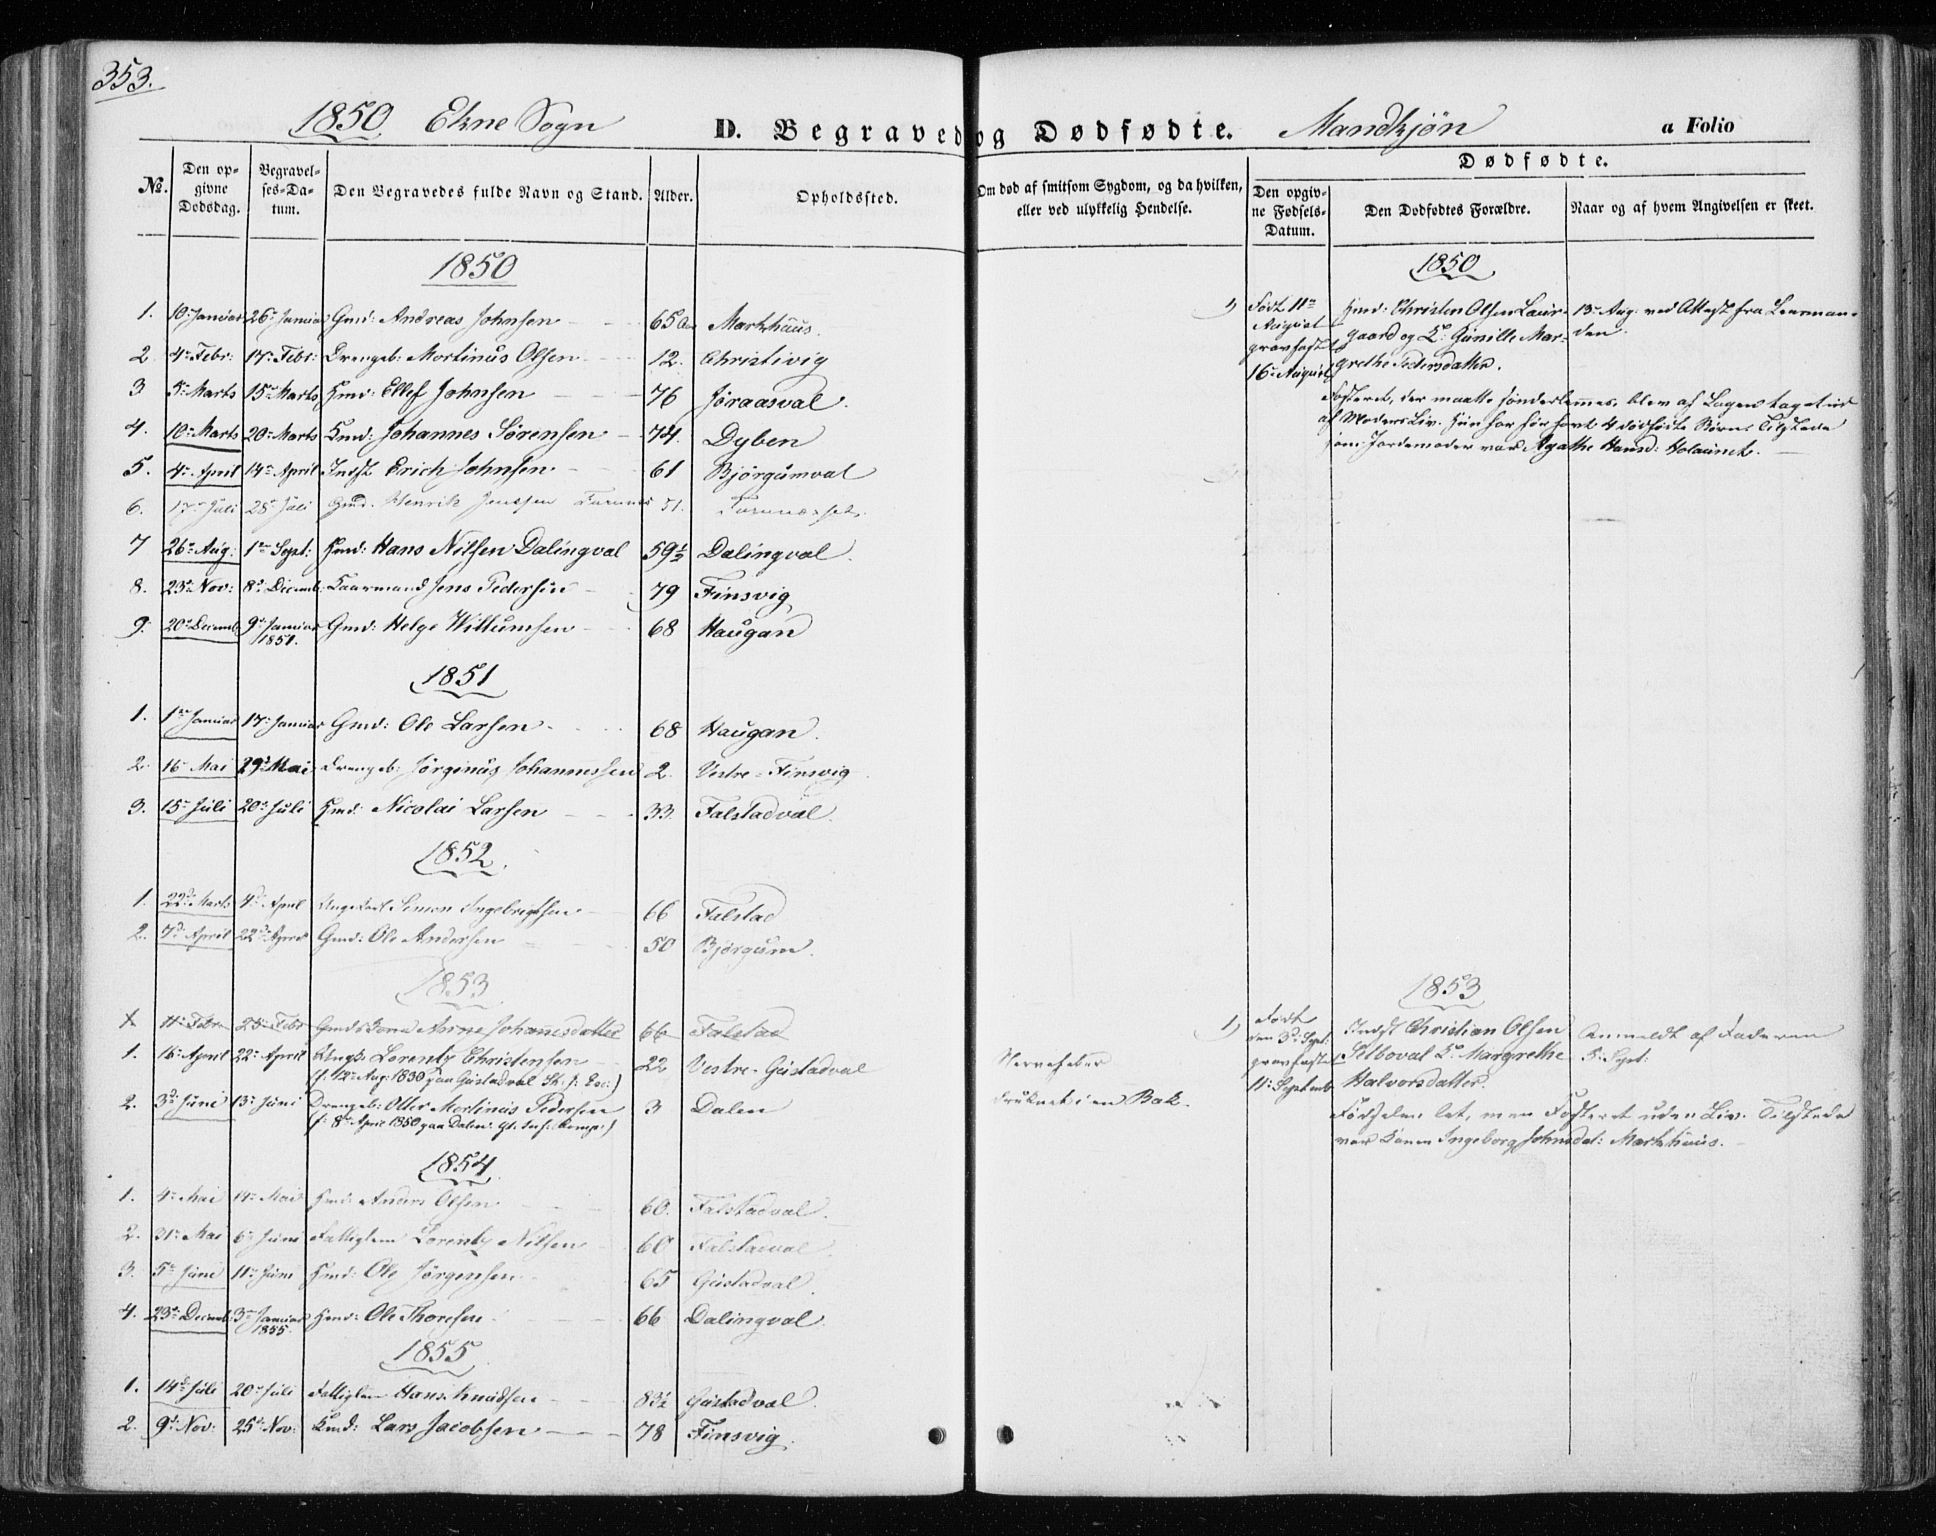 353.
1850 Ekne Sogn D. Begravede og Dødfødte. Mandkjøn a Folio
Dødfødte.
No. Den opgivne Dødsdag. Begravelses-Datum. Den Begravedes fulde Navn og Stand. Alder. Opholdssted. Om død af smitsom Sygdom, og da hvilken, eller ved ulykkelig Hendelse. Den opgivne Fødsels-Datum. Den Dødfødtes Forældre. Naar og af hvem Angivelsen er skeet.
1850
1. 10. Januar 26. Januar Gmd: Andreas Johnsen 65 Markhuus.
2. 4. Febr: 17. Febr: Drengeb: Mortinus Olsen 12. Christivig
3 5. Marts 15. Marts Hmd: Ellef Johnsen 76 Joraasval.
4. 10. Marts 20. Marts Kmd: Johannes Sørensen 74. Dyben
5. 4. April 14. April Indst Erich Johnsen 61 Bjørgumval
6. 17. Juli 28. Juli Gmd. Henrik Jenssen 51.
7 26. Aug: 1. Sept: Hmd: Hans Nilsen Dalingval 59½ Dalingval.
8. 23. Nov: 8. Decemb: Kaarmand Jens Pedersen 79 Finsvig
9. 20. Decemb 9. Januar 1851. Gmd: Helge Willumsen 68 Haugan
1851
1. 1. Januar 17. Januar Gmd: Ole Larsen 68 Haugan.
2. 16. Mai 29. Mai Drengeb: Jørginus Johannessen 2. Vestre-Finsvig
3. 15. Juli 20. Juli Hmd: Nicolai Larsen 33. Falstadval.
1852
1. 22. Marts 4. April Ungekarl Simon Ingebrigtsen 66 Falstad
2. 7. April 22. April Gmd: Ole Andersen 50 Bjørgum.
1853
11. Febr 25. Febr Gmds Kone Anne Johanesdatter 66 Falstad
1. 16. April 22. April Ungk: Lorentz Christensen 22 Vestre-Gustadval Nervefeber
(f. 12. Aug: 1830 paa Gustadval
2. 3. Juni 13. Juni Drengeb: Otter Mortinus Pedersen 3 Dalen druknet i en Bæk.
(f. 8. April 1850 paa Dalen
1854
1. 4. Mai 14. Mai Hmd: Anders Olsen 60. Falstadval.
2. 31. Mai 6. Juni Fattiglem Lorentz Nilsen 60 Falstadval.
3. 5. Juni 11. Juni Hmd: Ole Jørgensen 65 Gustadval.
4. 23. Decemb: 3. Januar 1855. Hmd: Ole Thoresen 66 Dalingval.
1855
1. 14. Juli 20. Juli Fattiglem Hans Knudsen 83½ Gustadval.
2. 9. Nov: 25. Nov: Kmd: Lars Jacobsen 78 Finsvig.
1850
1) Født 11. Hmd: Christen Olsen 13. Aug: ved Attest fra Lensman-
August gaard og K: Gunille Mar- den.
gravfæst grethe Pedersdatter.
16. August
Fosteret, der maatte sønderlemmes, blev af Lægen taget ud
af Moders Liv. Hun har før havt 4 dødfødte Børn. Tilstede
som Jordemoder var Agathe Hansd:
1853
1) Født Indst Christian Olsen Anmeldt af Faderen
den 3. Sept: Selboval K: Margrethe 5. Sept:
gravfæstet Halvorsdatter.
11. Septemb
Fødselen let, men Fosteret uden Liv. Tilstede
var Konen Ingeborg Johnsdat: Markhuus.